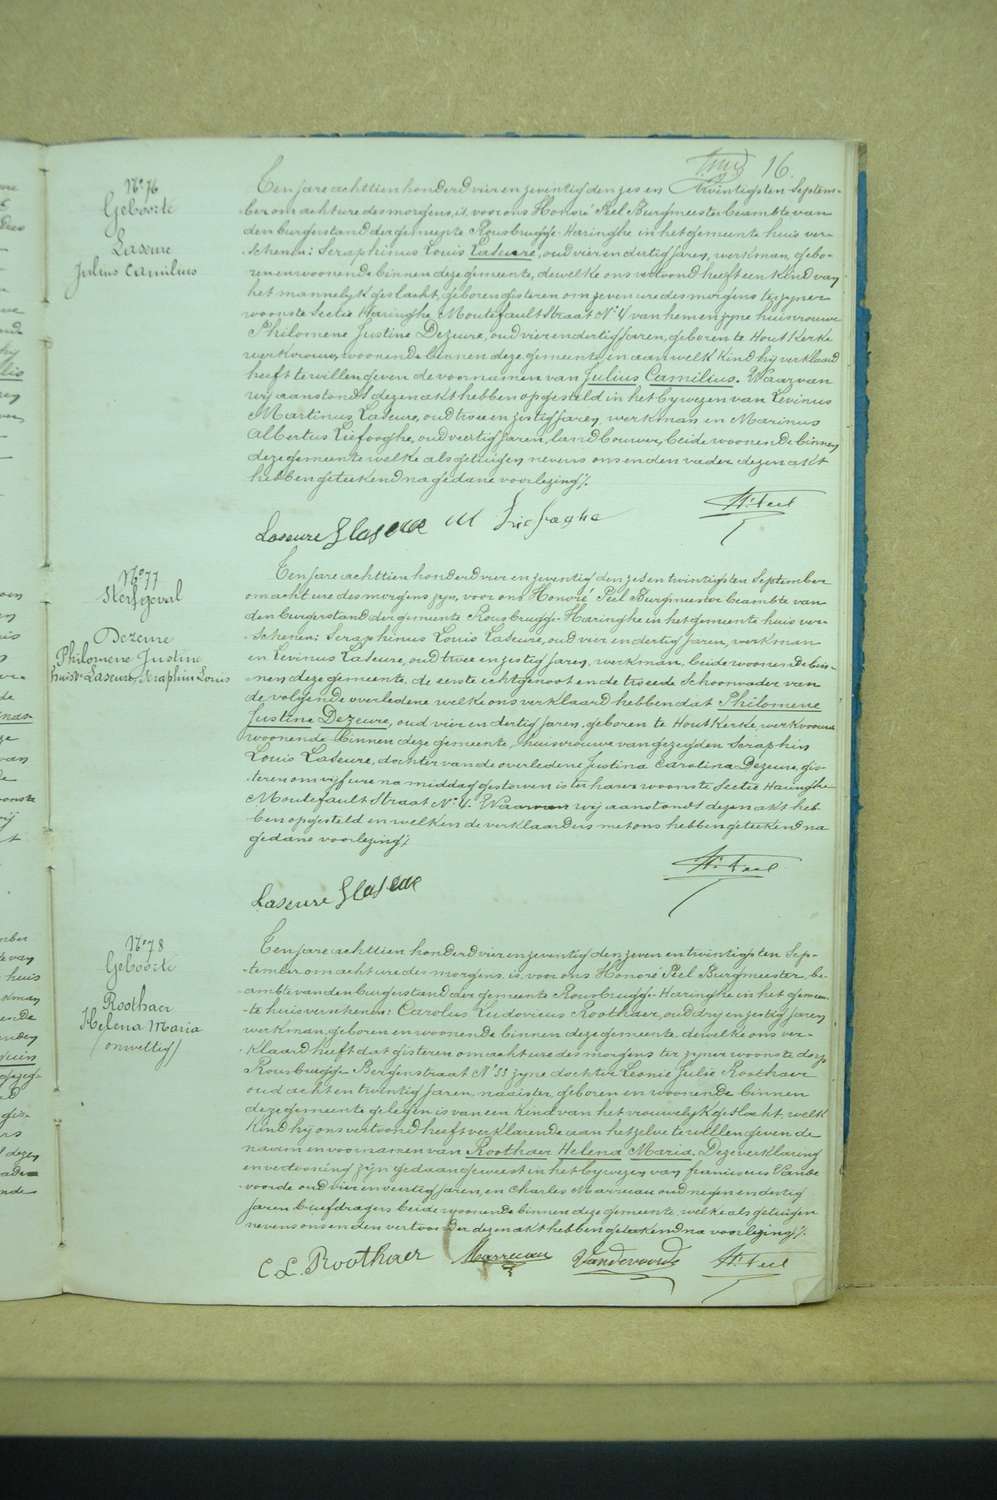 16.
N° 76
Geboorte
Laseure
Julius Camilius
Ten jare achttien honderd vier en zeventig den zes en twintigsten Septem-
ber om acht ure des morgens, is voor ons Honoré Peel Burgmeester beambte van
den burgerstand der gemeente Rousbrugge-Haringhe in het gemeente huis ver-
schenen: Seraphinus Louis Laseure, oud vier en dertig jaren, werkman, gebo-
ren en woonende binnen deze gemeente, dewelke ons vertoond heeft een kind van
het mannelyk geslacht, geboren gisteren om zeven ure des morgens te zyner
woonste Sectie Haringhe, Moutefault Straat N° 4 van hem en zyne huisvrouwe
Philomene Justine Dezeure, oud vier en dertig jaren, geboren te Houtkerke
werkvrouw, woonende binnen deze gemeente, en aan welk kind hy verklaard
heeft te willen geven de voornamen van Julius Camilius. Waarvan
wy aanstonds dezen akt hebben opgesteld in het bywezen van Levinus
Martinus Laseure, oud twee en zestig jaren, werkman en Marinus
Albertus Liefooghe, oud veertig jaren, landbouwer, beide woonende binnen
deze gemeente welke als getuigen nevens ons en den vader dezen akt
hebben geteekend na gedane voorlezing/.
Laseure S Laseure M Liefooghe H. Peel
N° 77
Sterfgeval
Dezeure
Philomene Justine
huisv. Laseure, Seraphin Louis
Ten jare achttien honderd vier en zeventig den zes en twintigsten September
om acht ure des morgens zyn, voor ons Honoré Peel Burgmeester beambte van
den burgerstand der gemeente Rousbrugge-Haringhe in het gemeente huis ver-
schenen: Seraphinus Louis Laseure, oud vier en dertig jaren, werkman
en Levinus Laseure, oud twee en zestig jaren, werkman, beide woonende bin-
nen deze gemeente, de eerste echtgenoot en de tweede Schoonvader van
de volgende overledene welke ons verklaard hebben dat Philomene
Justine Dezeure, oud vier en dertig jaren, geboren te Houtkerke, werkvrouw
woonende binnen deze gemeente, huisvrouwe van gezeyden Seraphin
Louis Laseure, dochter van de overledene Justina Carolina Dezeure, gis-
teren om vijf ure na middag gestorven is ter harer woonste Sectie Haringhe
Moutefault Straat N° 4. Waarvan wy aanstonds dezen akt heb-
ben opgesteld en welken de verklaarders met ons hebben geteekend na
gedane voorlezing/.
Laseure S Laseure H. Peel
N° 78
Geboorte
Roothaer
Helena Maria
(onwettig)
Ten jare achttien honderd vier en zeventig den zeven en twintigsten Sep-
tember om acht ure des morgens, is, voor ons Honoré Peel Burgmeester, be-
ambte van den burgerstand der gemeente Rousbrugge-Haringhe in het gemeen-
te huis verschenen: Carolus Ludovicus Roothaer, oud dry en zestig jaren
werkman, geboren en woonende binnen deze gemeente, dewelke ons ver-
klaard heeft dat gisteren om acht ure des morgens ter zyner woonste dorp
Rousbrugge Bergenstraat N° 33 zyne dochter Leonie Julie Roothaer
oud acht en twintig jaren, naaister, geboren en woonende binnen
deze gemeente gelegen is van een kind van het vrouwelyk geslacht, welk
kind hy ons vertoond heeft verklarende aan hetzelve te willen geven de
naam en voornamen van Roothaer Helena Maria. Deze verklaring
en vertooning zyn gedaan geweest in het bywezen van franciscus Vande
voorde oud vier en veertig jaren, en Charles Marreeau oud negen en dertig
jaren briefdragers beide woonende binnen deze gemeente, welke als getuigen
nevens ons en den vertooner dezen akt hebben geteekend na voorlezing/.
C. L. Roothaer Marreeau Vandevoorde H. Peel